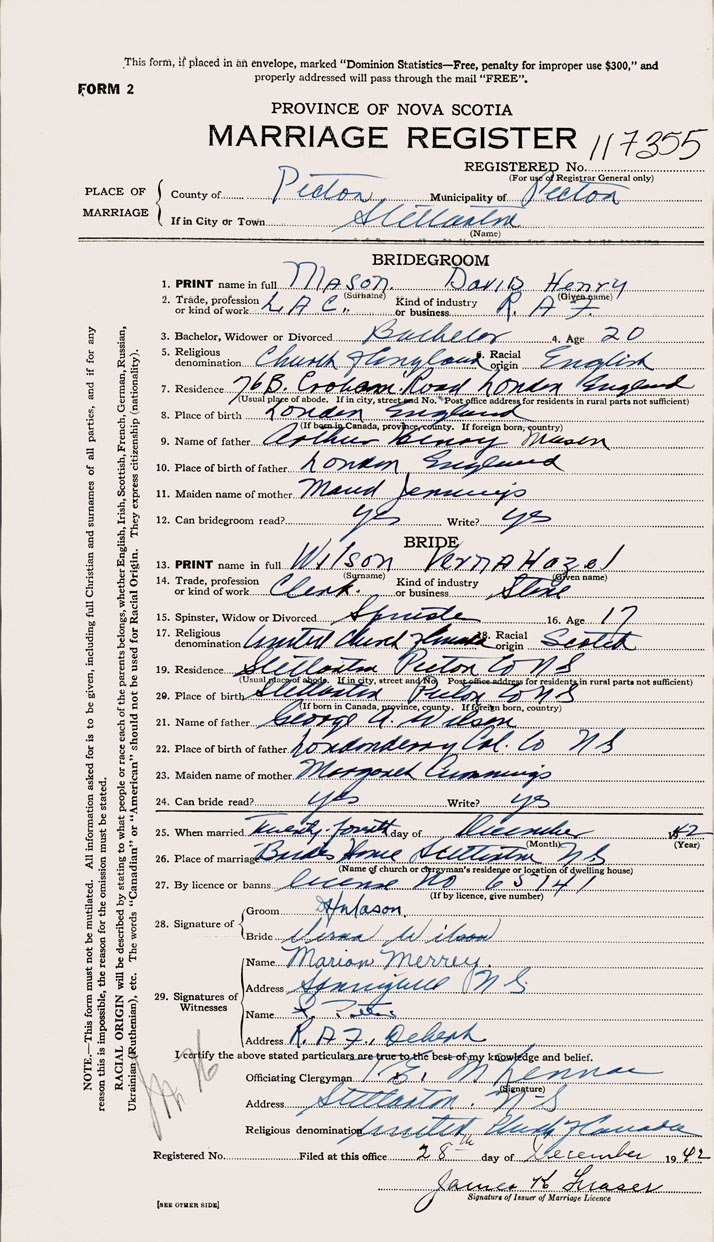 This form, if placed in an envelope, marked "Dominion Statistics—Free, penalty for improper use $300," and
properly addressed will pass through the mail "FREE".
FORM 2
PROVINCE OF NOVA SCOTIA
MARRIAGE REGISTER 117355
REGISTERED No.
(For use of Registrar General only)
PLACE OF MARRIAGE
County of Pictou Municipality of Pictou
If in City or Town Stellarton
(Name)
BRIDEGROOM
1. PRINT name in full MASON. DAVID HENRY
(Surname) (Given name)
2. Trade, profession or kind of work L.A.C. Kind of industry or business R.A.F.
3. Bachelor, Widower or Divorced Bachelor 4. Age 20
5. Religious denomination Church of England 6. Racial origin English
7. Residence 76B. Croham Road London England
(Usual place of abode. If in city, street and No. Post office address for residents in rural parts not sufficient)
8. Place of birth London England
(If born in Canada, province, county. If foreign born, country)
9. Name of father Arthur Henry Mason
10. Place of birth of father London England
11. Maiden name of mother Maud Jennings
12. Can bridegroom read? yes Write? yes
BRIDE
13. PRINT name in full WILSON VERNA HAZEL
(Surname) (Given name)
14. Trade, profession or kind of work Clerk. Kind of industry or business Store
15. Spinster, Widow or Divorced Spinster 16. Age 17
17. Religious denomination United Church of Canada 18. Racial origin Scotch
19. Residence Stellarton Pictou Co N S
(Usual place of abode. If in city, street and No. Post office address for residents in rural parts not sufficient)
20. Place of birth Stellarton Pictou Co N S
(If born in Canada, province, county. If foreign born, country)
21. Name of father George A. Wilson
22. Place of birth of father Londonderry Col. Co N S
23. Maiden name of mother Margaret Cummings
24. Can bride read? yes Write? yes
25. When married Twenty-fourth day of December 1942
(Month) (Year)
26. Place of marriage Brides Home Stellarton N S
(Name of church or clergyman's residence or location of dwelling house)
27. By licence or banns license No 65141
(If by licence, give number)
28. Signature of
Groom DHMason
Bride Verna Wilson
29. Signatures of Witnesses
Name Marion Merrey
Address N S.
Name
Address R.A.F., Debert
I certify the above stated particulars are true to the best of my knowledge and belief.
Officiating Clergyman
(Signature)
Address Stellarton. N-S
Religious denomination United Church of Canada
Registered No. Filed at this office 28th day of December 1942
James H Fraser
Signature of Issuer of Marriage Licence
[SEE OTHER SIDE]
NOTE.—This form must not be mutilated. All information asked for is to be given, including full Christian and surnames of all parties, and if for any
reason this is impossible, the reason for the omission must be stated.
RACIAL ORIGIN will be described by stating to what people or race each of the parents belongs, whether English, Irish, Scottish, French, German, Russian,
Ukrainian (Ruthenian), etc. The words "Canadian" or "American" should not be used for Racial Origin. They express citizenship (nationality).